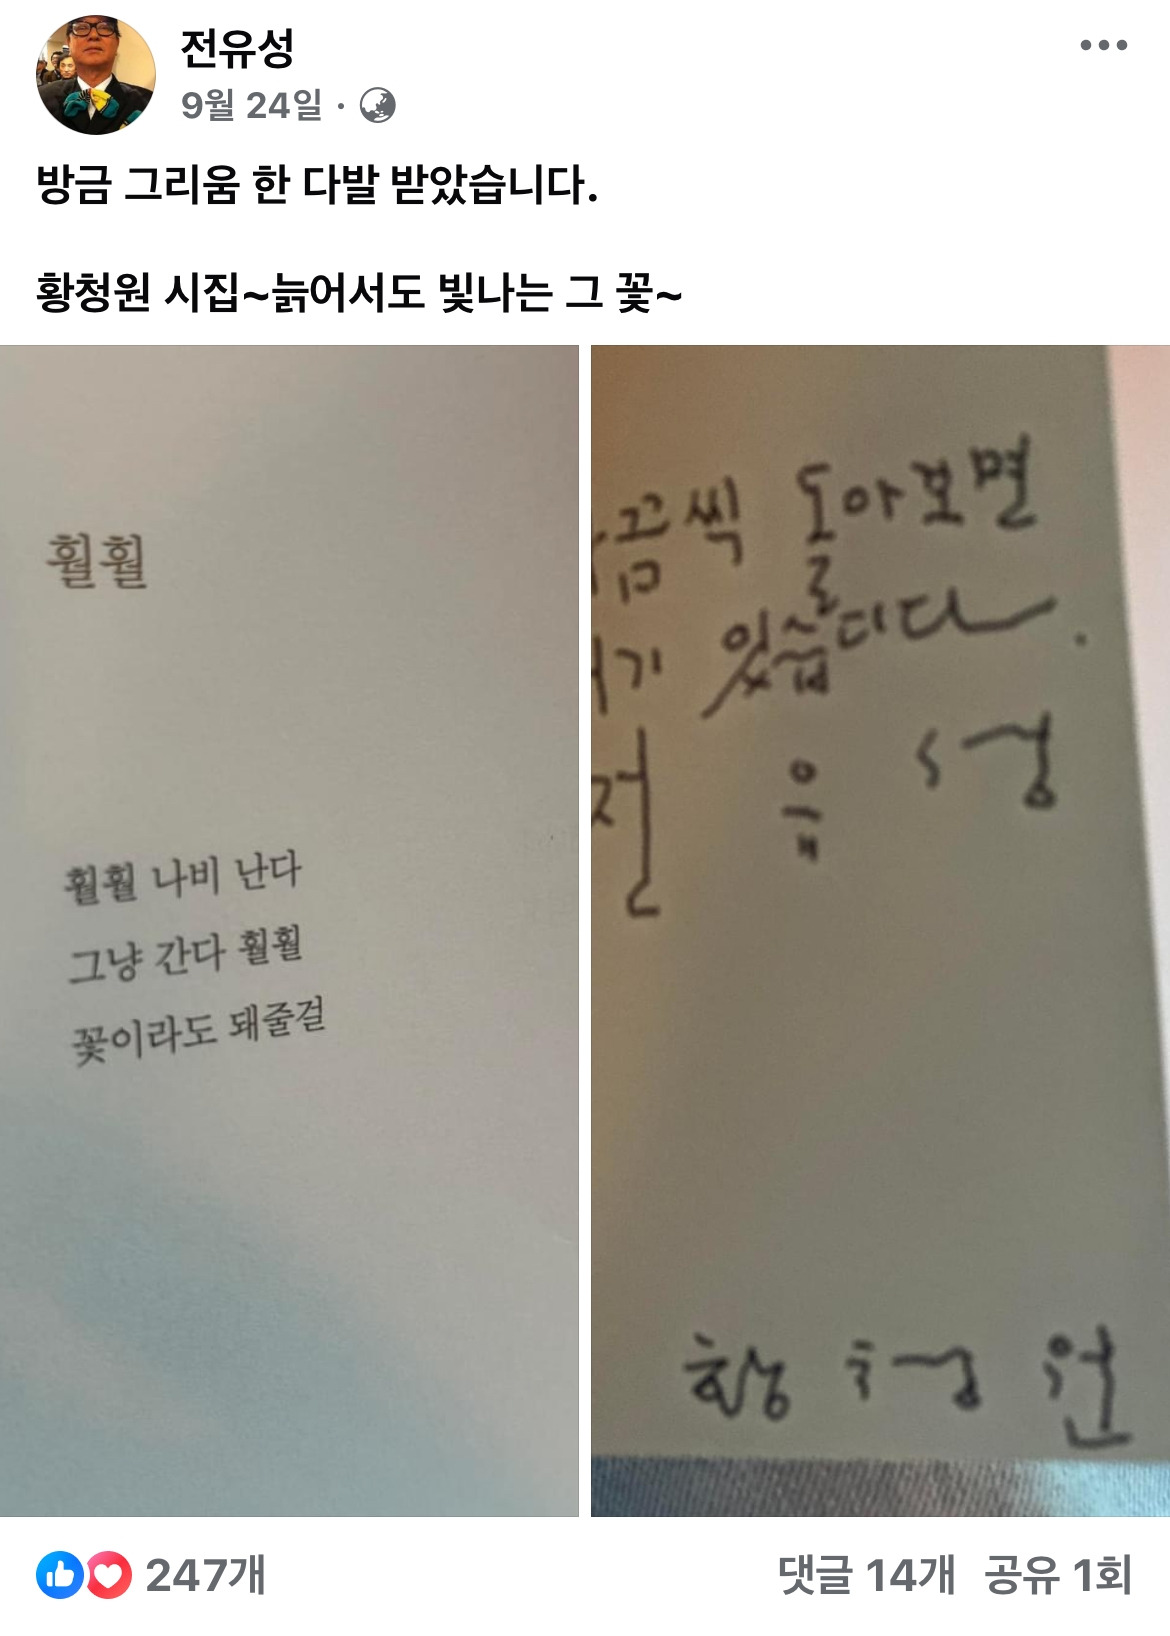 전유성
9월 24일 ·
방금 그리움 한 다발 받았습니다.
황청원 시집~늙어서도 빛나는 그 꽃~
훨훨
훨훨 나비 난다
그냥 간다 훨훨
꽃이라도 돼줄걸
돌아보면
있습디다.
전 유 성
황 청 원
247개
댓글 14개 공유 1회